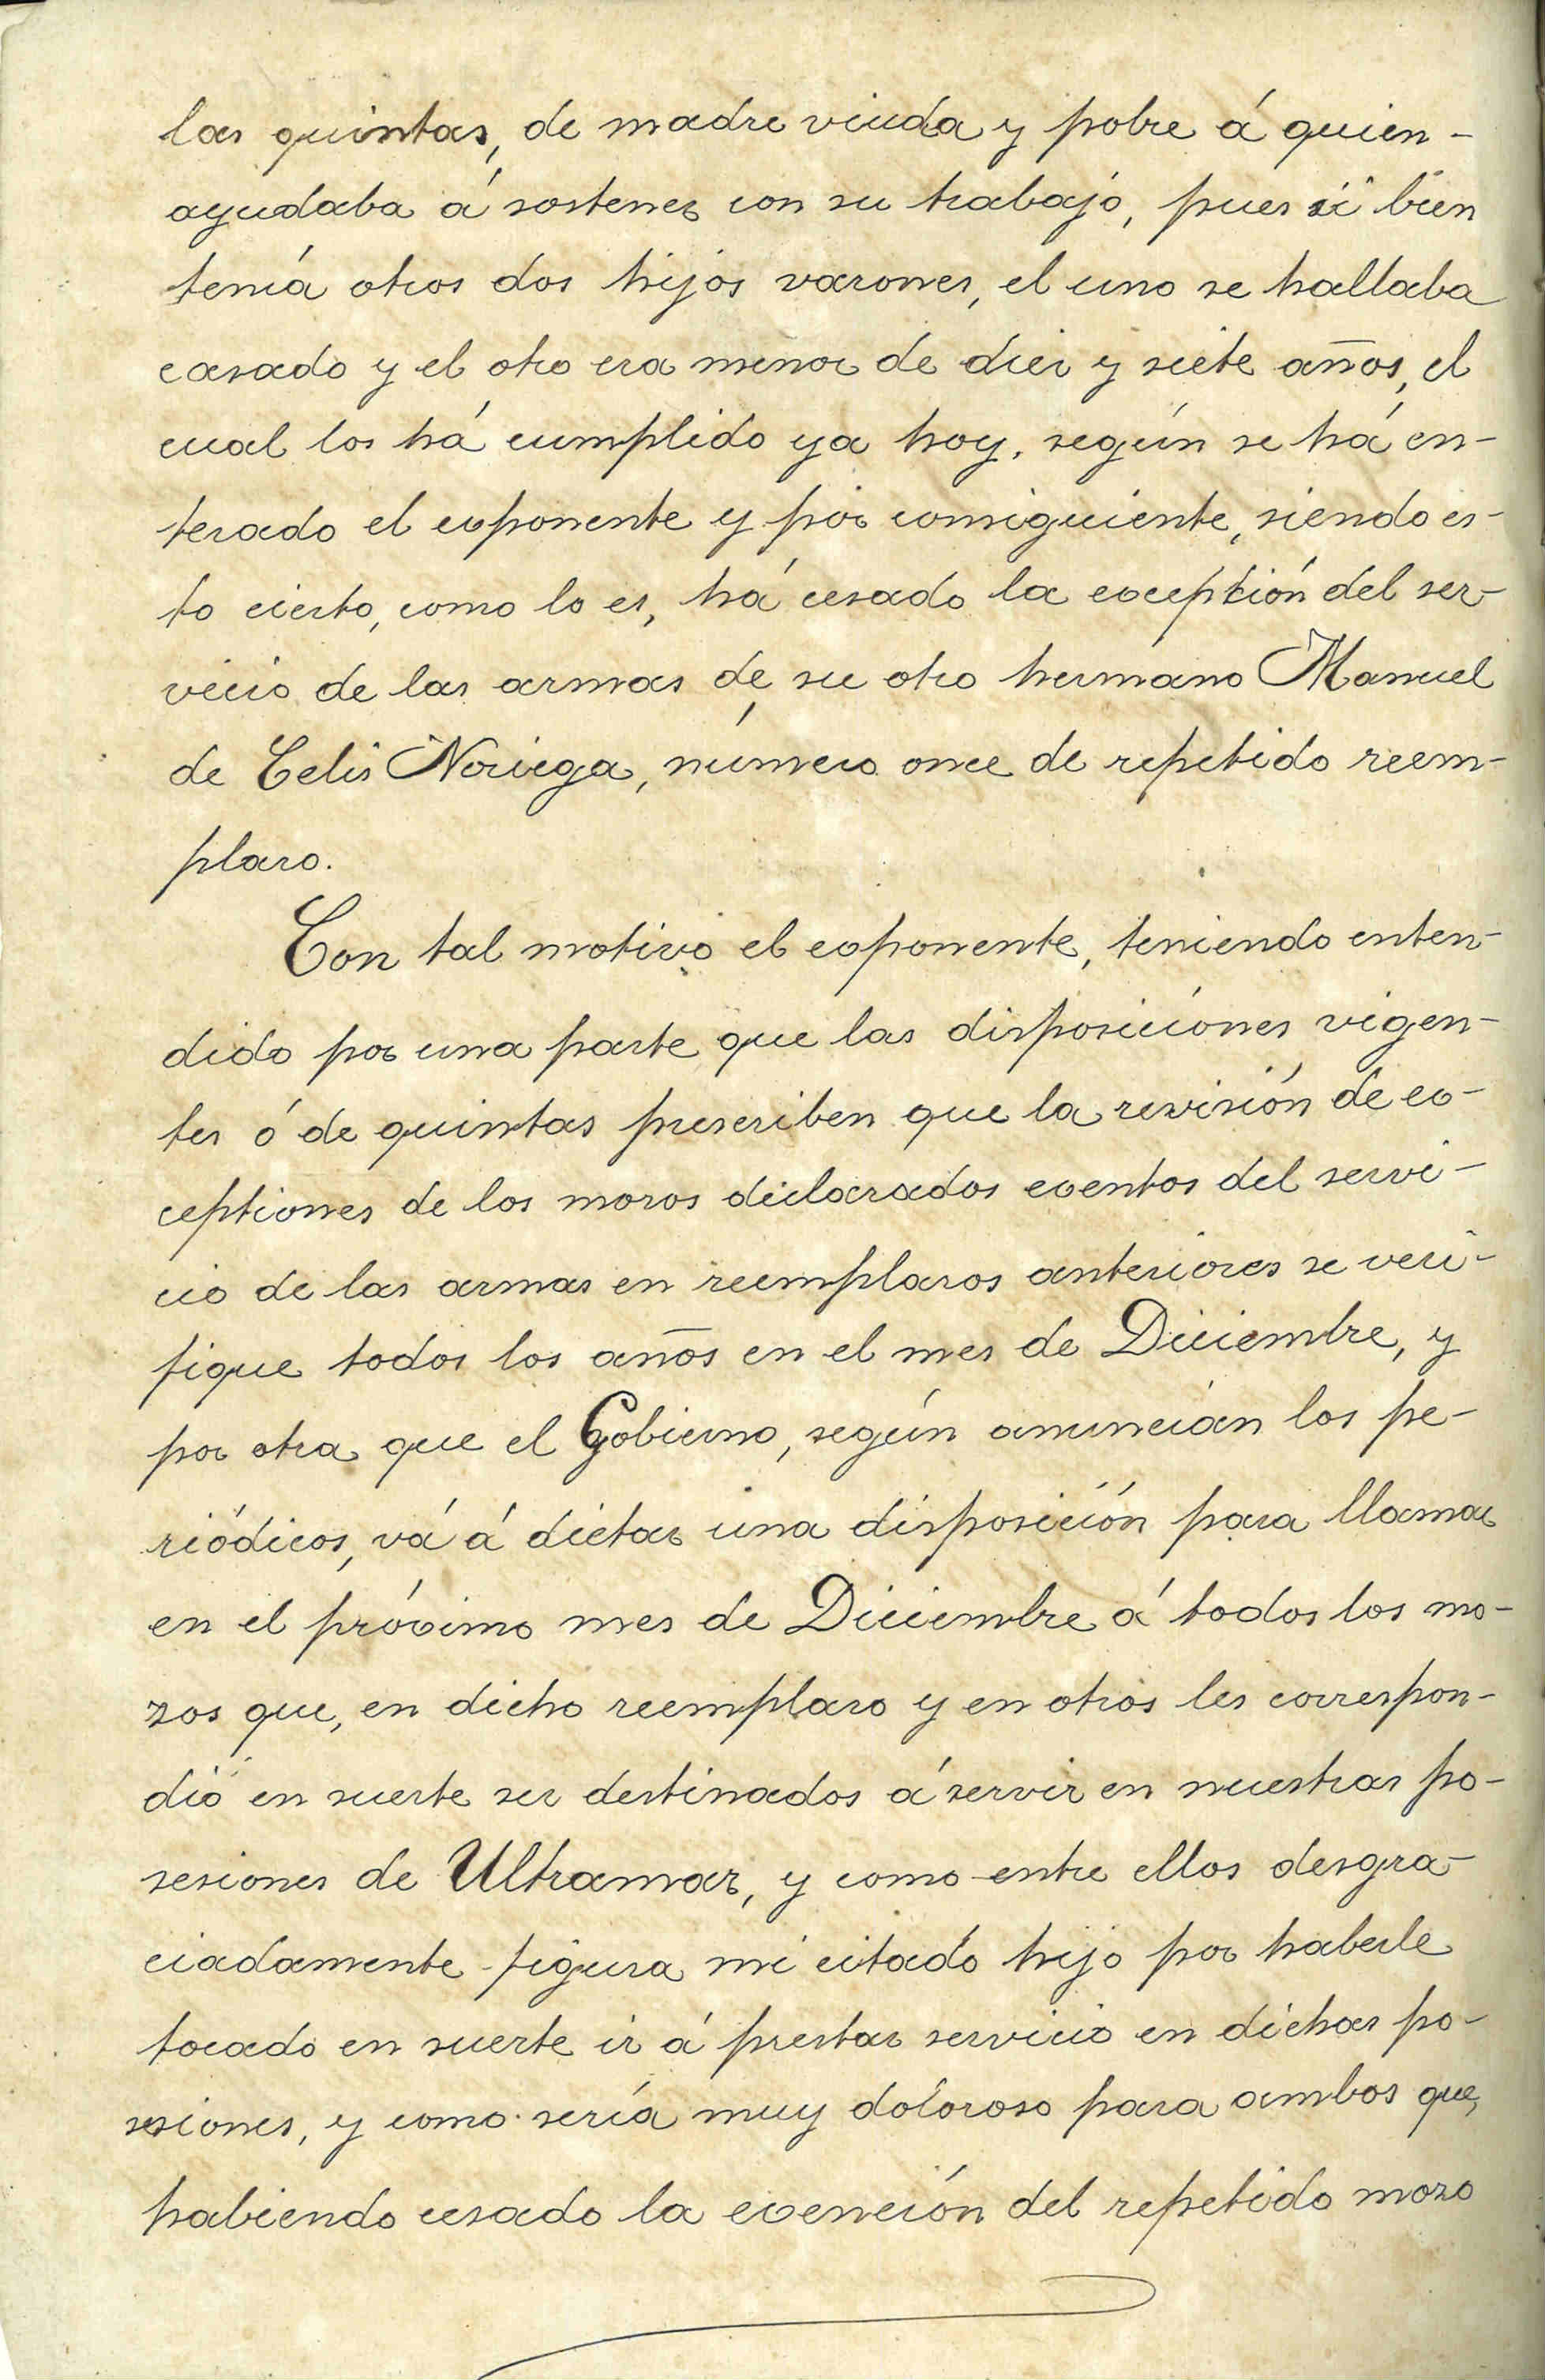 las quintas, de madre viuda y pobre á quien-
ayudaba á sostener con su trabajo, pues si bien
tenía otros dos hijos varones, el uno se hallaba
casado y el otro era menor de diez y siete años, el
cual los há cumplido ya hoy, según se há en-
terado el exponente y por consiguiente, siendo es-
to cierto, como lo es, há cesado la excepción del ser-
vicio de las armas de su otro hermano Manuel
de Celis Noriega, número once de repetido reem-
plazo.
Con tal motivo el exponente, teniendo enten-
dido por una parte que las disposiciones vigen-
tes ó de quintas prescriben que la revisión de ex-
cepciones de los mozos declarados exentos del servi-
cio de las armas en reemplazos anteriores se veri-
fique todos los años en el mes de Diciembre, y
por otra que el Gobierno, según anuncian los pe-
riódicos, vá á dictar una disposición para llamar
en el próximo mes de Diciembre á todos los mo-
zos que, en dicho reemplazo y en otros les correspon-
dió en suerte ser destinados á servir en nuestras po-
sesiones de Ultramar, y como entre ellos desgra-
ciadamente figura mi citado hijo por haberle
tocado en suerte ir á prestar servicio en dichas po-
sesiones, y como sería muy doloroso para ambos que,
habiendo cesado la exención del repetido mozo